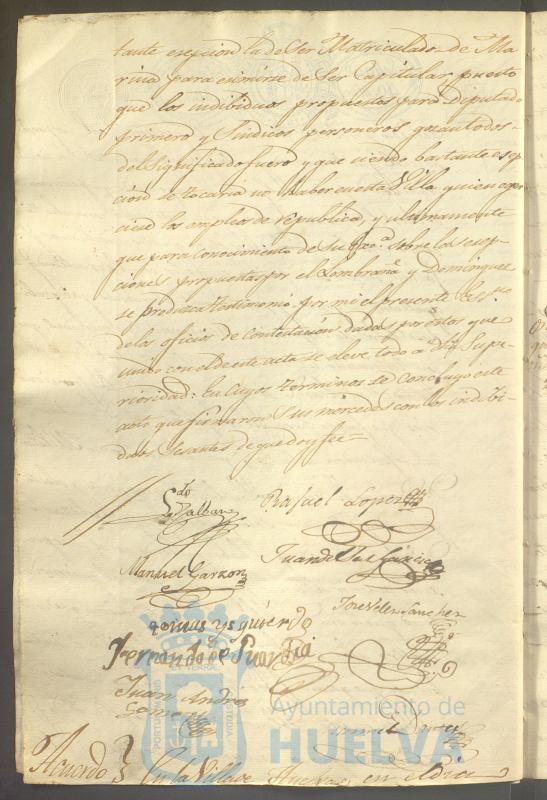 tante esepcion la de Ser Matriculado de Ma-
rina para eximirse de Ser Capitular, puesto
que los indibiduos propuestos para Diputado
primero y Sindicos personeros gozan todos
del Significado fuero y que siendo bastante esep
cion se tocaria no haber en esta Villa quien exer-
ciere los empleos de republica, y ultimamente
que para conocimiento de su exª. sobre las esep-
ciones propuestas por el Lombraña y Dominguez
se produzca testimonio por mi el presente Essno
de los oficios de contestacion dados por estos que
unido con el de este acta se eleve todo a dha Supe-
rioridad: En cuyos terminos se concluyo este
acto que firmaron Sus mercedes con los indibi-
duos Sesantes de que doy fee=
Rafael Lopez
Manuel Garzon
Juan de
tomas ysquierdo
Jose Velez Sanchez
Fernando de
Juan Andres
Ayuntamiento de
HUELVA
Acuerdo } En la Villa de Huelva en el dia